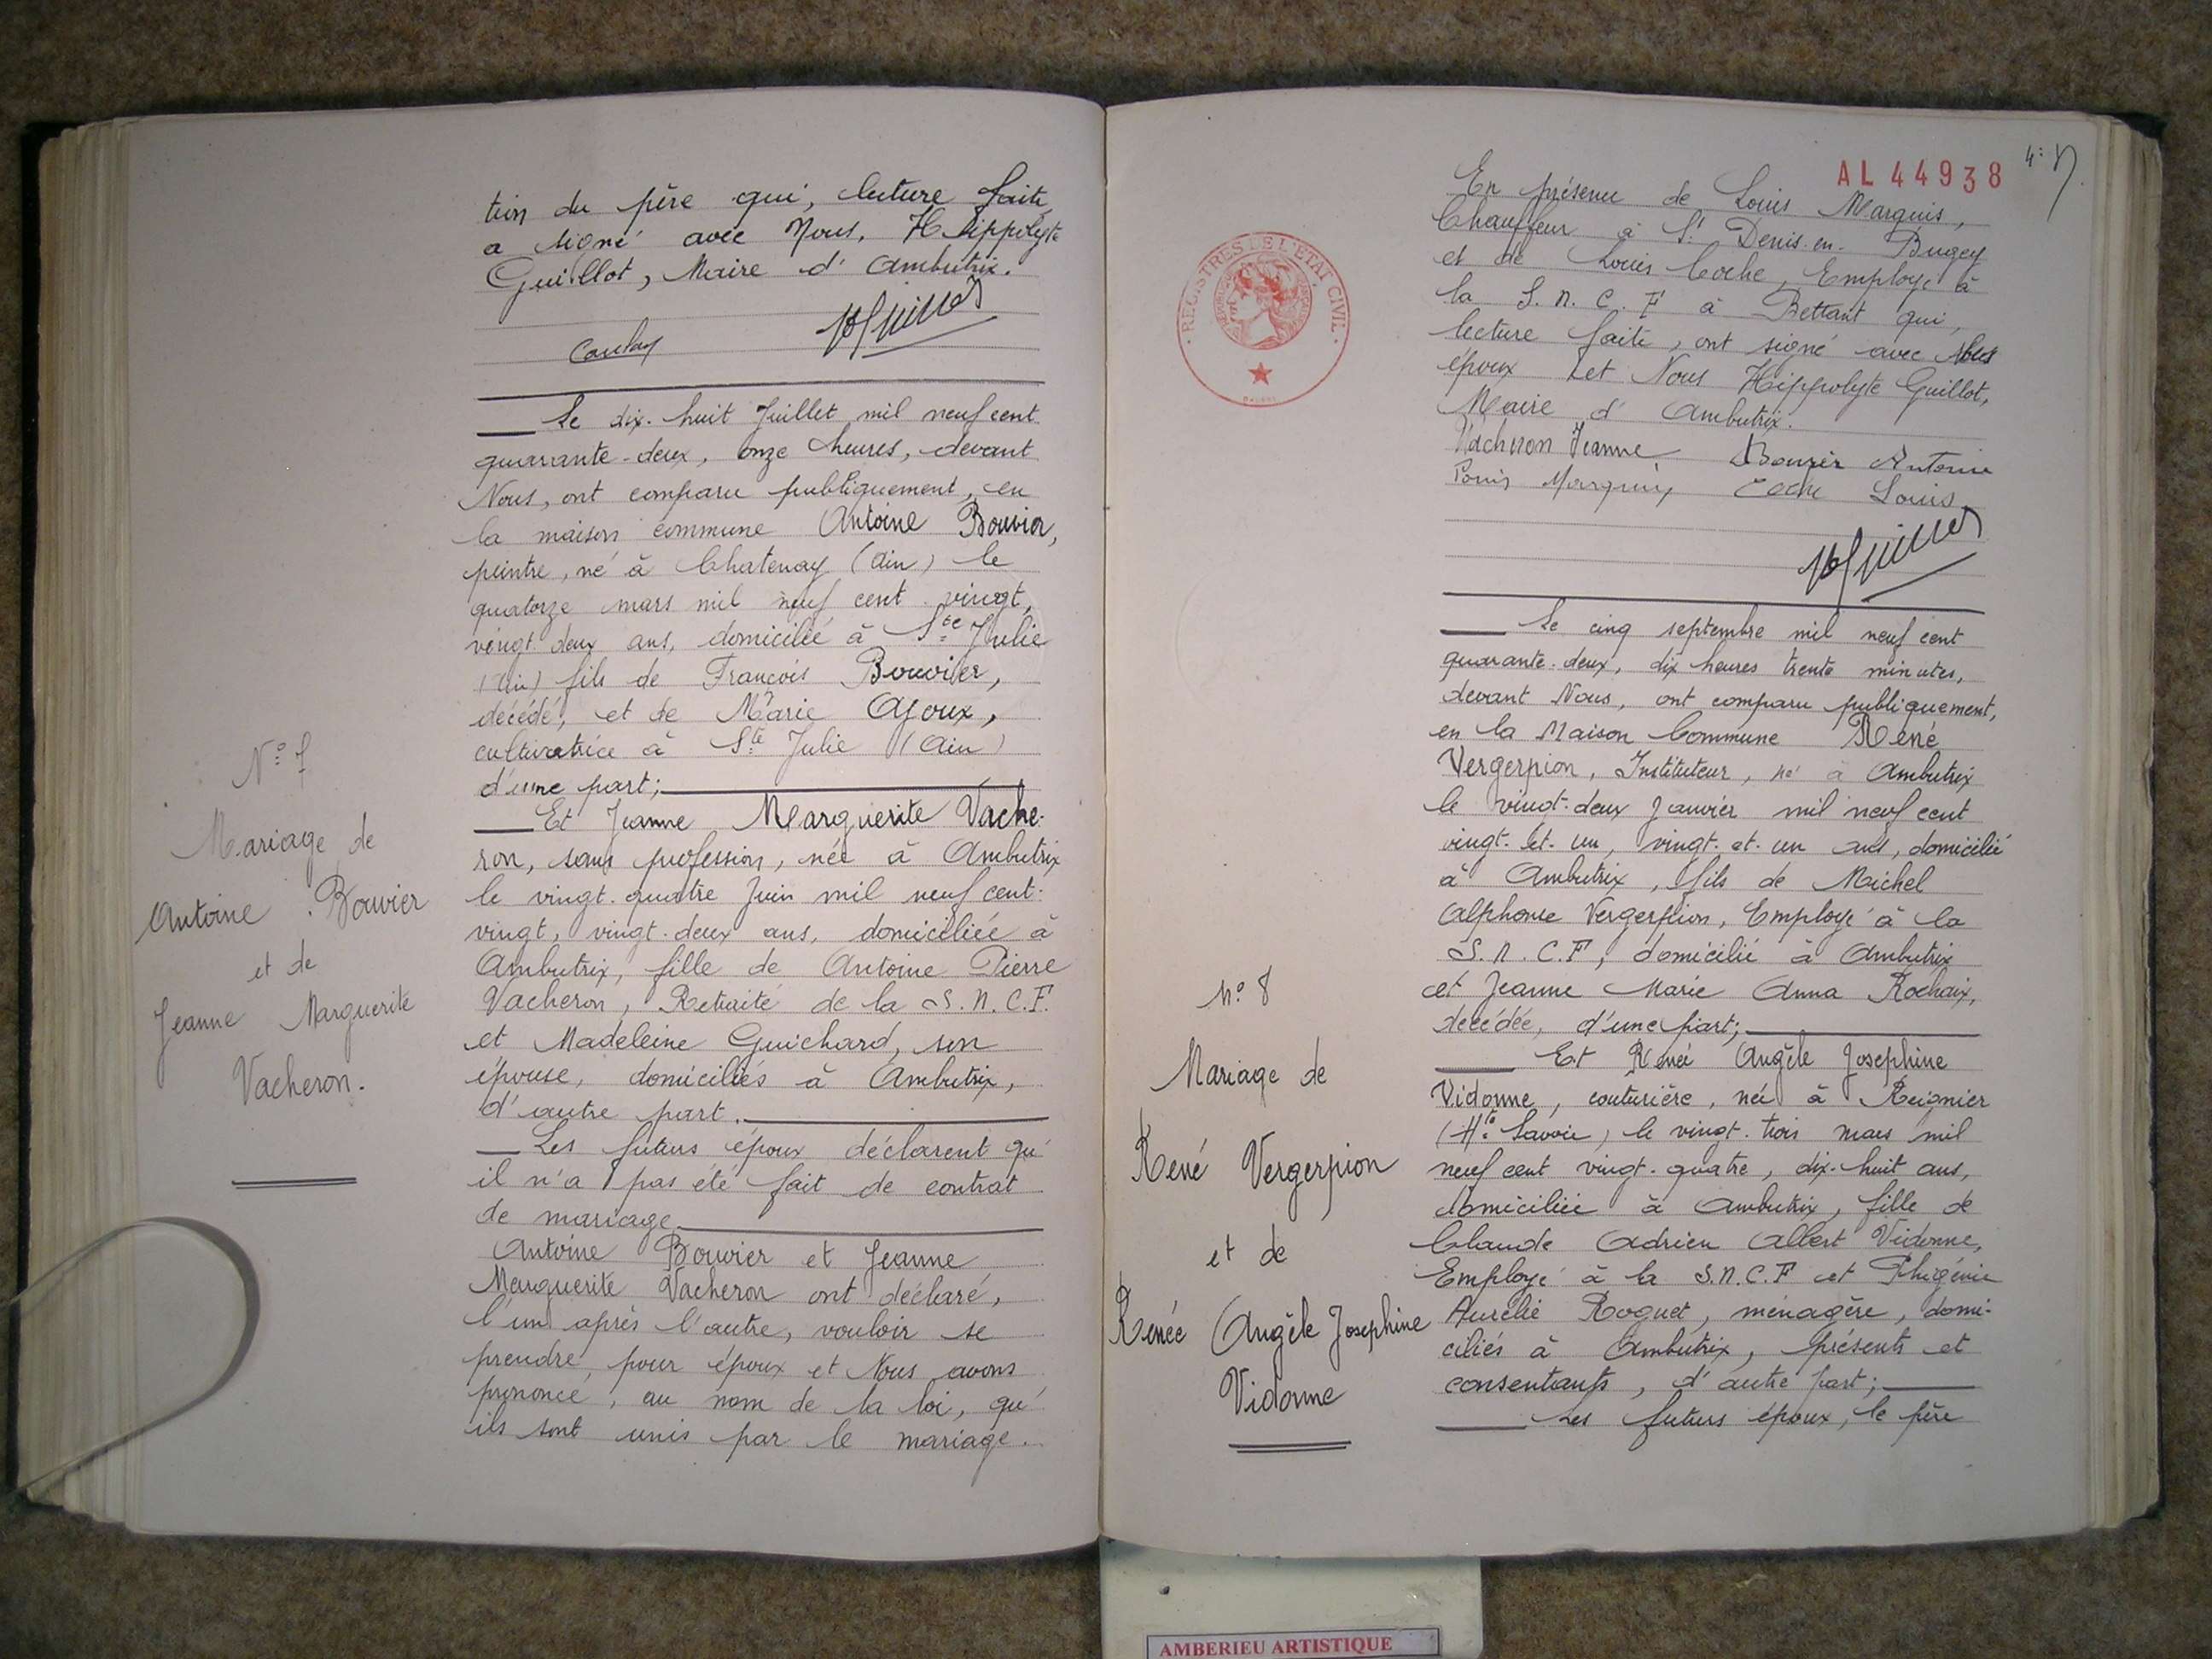 tion du père qui, lecture faite,
a signé avec Nous, Hippolyte
Guillot, Maire d'Ambutrix.
Le dix-huit Juillet mil neuf cent
quarante-deux, onze heures, devant
Nous, ont comparu publiquement, en
la maison commune Antoine Bouvier,
peintre, né à Chatenay (Ain) le
quatorze mars mil neuf cent vingt,
vingt-deux ans, domicilié à Ste Julie
(Ain) fils de François Bouvier,
décédé, et de Marie Ajoux,
cultivatrice à Ste Julie (Ain)
d'une part;
Et Jeanne Marguerite Vache-
ron, sans profession, née à Ambutrix
le vingt-quatre Juin mil neuf cent-
vingt, vingt-deux ans, domiciliée à
Ambutrix, fille de Antoine Pierre
Vacheron, Retraité de la S.N.C.F.
et Madeleine Guichard, son
épouse, domiciliés à Ambutrix,
d'autre part.
Les futurs époux déclarent qu'
il n'a pas été fait de contrat
de mariage.
Antoine Bouvier et Jeanne
Marguerite Vacheron ont déclaré,
l'un après l'autre, vouloir se
prendre pour époux et Nous avons
prononcé, au nom de la loi, qu'
ils sont unis par le mariage.
N° 7
Mariage de
Antoine Bouvier
et de
Jeanne Marguerite
Vacheron.
AL 44938
REGISTRES DE L'ETAT CIVIL
En présence de Louis Marquis,
Chauffeur à St Denis-en-Bugey
et de Louis Coche, Employé à
la S.N.C.F à Bettant qui,
lecture faite, ont signé avec les
époux et Nous Hippolyte Guillot,
Maire d'Ambutrix.
Vacheron Jeanne Bouvier Antoine
Louis Marquis Coche Louis
Le cinq septembre mil neuf cent
quarante-deux, dix heures trente minutes,
devant Nous, ont comparu publiquement,
en la Maison Commune René
Vergerpion, Instituteur, né à Ambutrix
le vingt-deux Janvier mil neuf cent
vingt-et-un, vingt-et-un ans, domicilié
à Ambutrix, fils de Michel
Alphonse Vergerpion, Employé à la
S.N.C.F, domicilié à Ambutrix
et Jeanne Marie Anna Rochaix,
décédée, d'une part;
Et Renée Angèle Josephine
Vidonne, couturière, née à Reignier
(Hte Savoie) le vingt-trois mars mil
neuf cent vingt-quatre, dix-huit ans,
domiciliée à Ambutrix, fille de
Claude Adrien Albert Vidonne,
Employé à la S.N.C.F et Phigénie
Aurélie Roguet, ménagère, domi-
ciliés à Ambutrix, présents et
consentants, d'autre part;
Les futurs époux, le père
N° 8
Mariage de
René Vergerpion
et de
Renée Angèle Josephine
Vidonne
AMBERIEU ARTISTIQUE